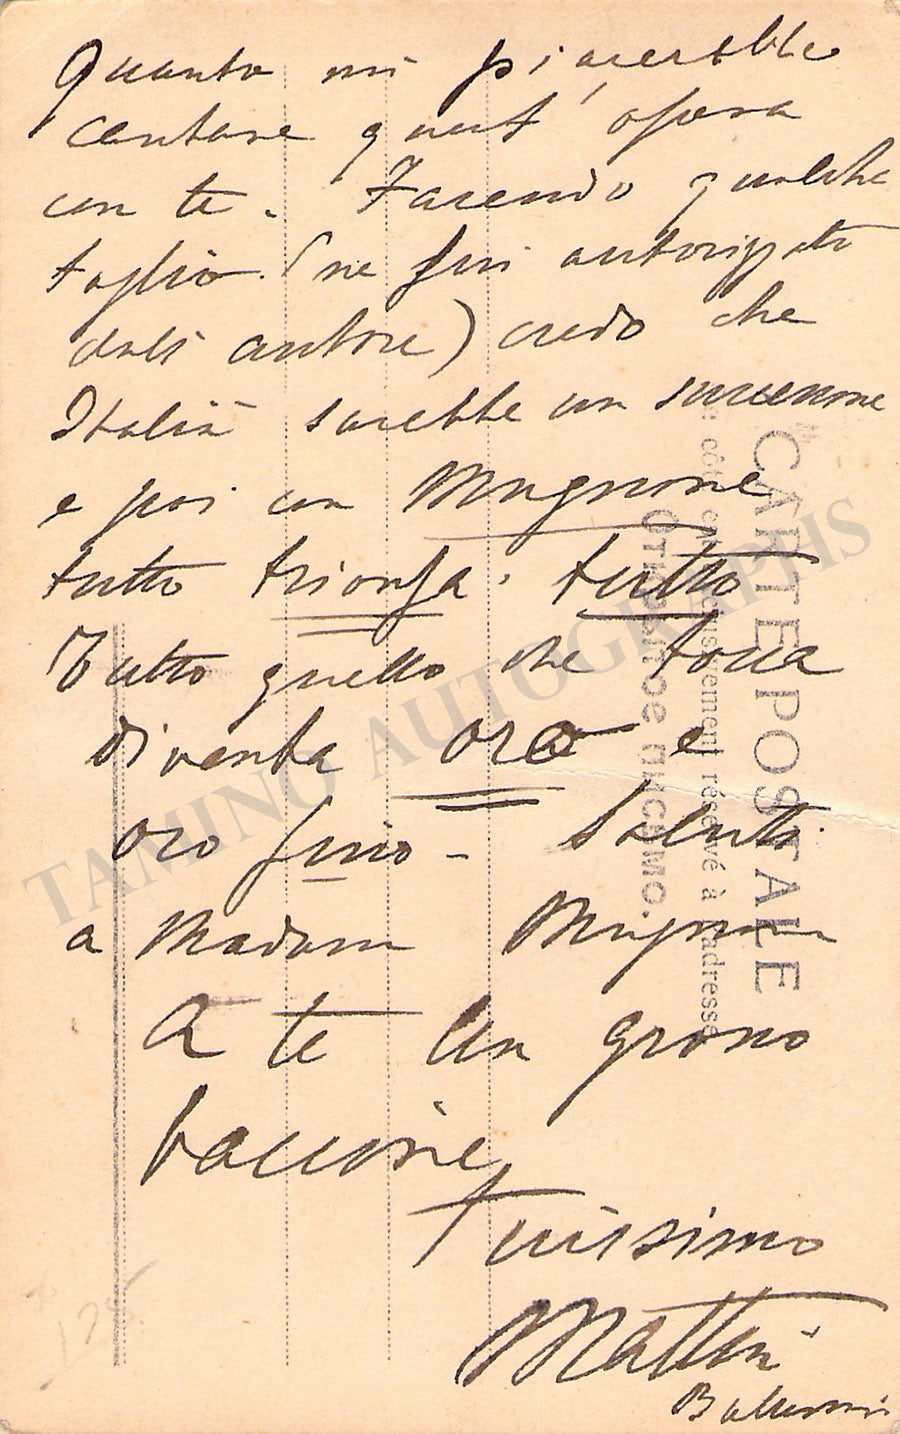 Quanto mi piacerebbe
cantare quest' opera
con te. Facendo qualche
taglio (ne fui autorizzato
dall' autore) credo che
Italia sarebbe un successone
e poi con Mugnone
tutto trionfa. tutto
Tutto quello che tocca
diventa oro e
oro fino - Saluti
a Madame Mugnone
A te un grosso
baccione
Tuissimo
Mattia
Battistini
CARTE POSTALE
côté exclusivement réservé à l'adresse
Открытое письмо.
TAMINO AUTOGRAPHS
125